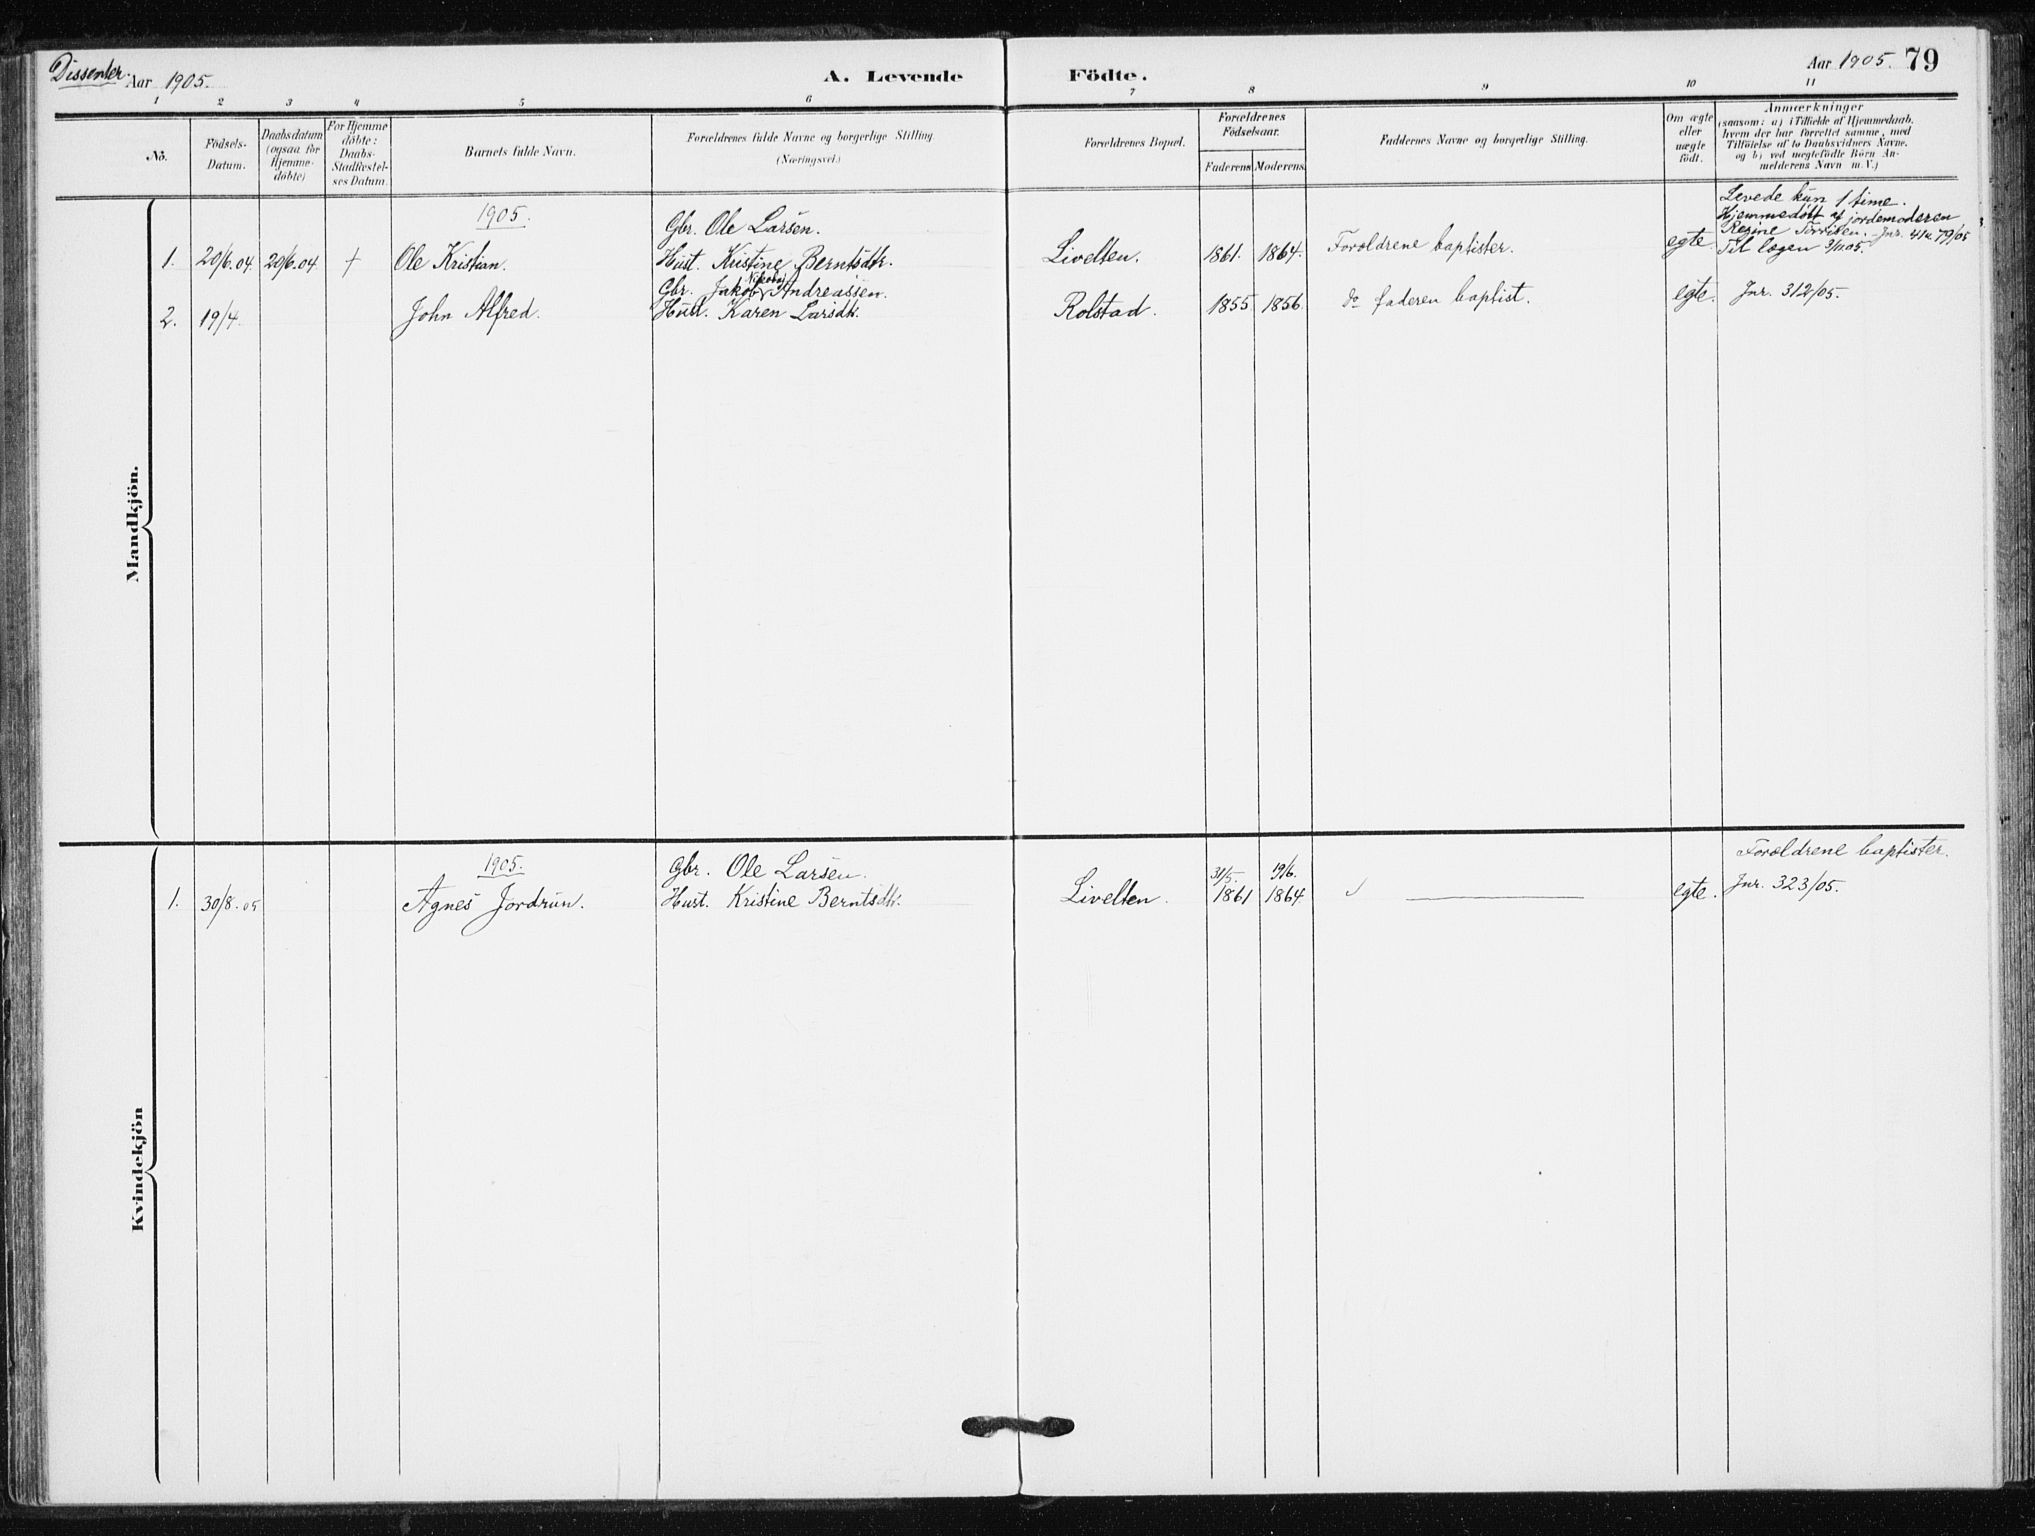 Dissenter.
Aar 1905.
A. Levende Födte.
Aar 1905. 79
1 2 3 4 5 6 7 8 9 10 11
No.
Födsels-
Datum.
Daabsdatum
(ogsaa for
Hjemme-
döbte)
For Hjemme
döbte:
Daabs-
Stadfæstel-
ses Datum.
Barnets fulde Navn.
Forældrenes fulde Navne og borgerlige Stilling.
(Næringsvei.)
Forældrenes Bopæl.
Forældrenes
Födselsaar.
Faderens Moderens.
Faddernes Navne og borgerlige Stilling.
Om ægte
eller
uægte
födt.
Anmærkninger
(saasom: a) i Tilfælde af Hjemmedaab,
hvem der har forrettet samme, med
Tilföielse af to Daabsvidners Navne.
og b) ved uægtefödte Börn An-
melderens Navn m. V.)
Mandkjön.
1905.
1. 20/6.04. 20/6.04 + Ole Kristian.
Gbr. Ole Larsen.
Hust. Kristine Berntsdtr.
Livelten. 1861. 1864. Forældrene baptister. egte.
Levede kun 1 time.
Hjemmedöbt af jordemoderen
Regine - Jnr. 41 79/05
Til lægen 3/11.05.
2. 19/4. John Alfred.
Gbr. Jakob Andreassen.
Hust. Karen Larsdtr.
Rolstad. 1855. 1856. do faderen baptist. egte. Jnr. 312/05.
Kvindekjön
1905.
1. 30/8.05 Agnes Jordrun.
Gbr. Ole Larsen.
Hust. Kristine Berntsdtr.
Livelten.
31/5. 19/6.
1861 1864 egte.
Forældrene baptister.
Jnr. 323/05.